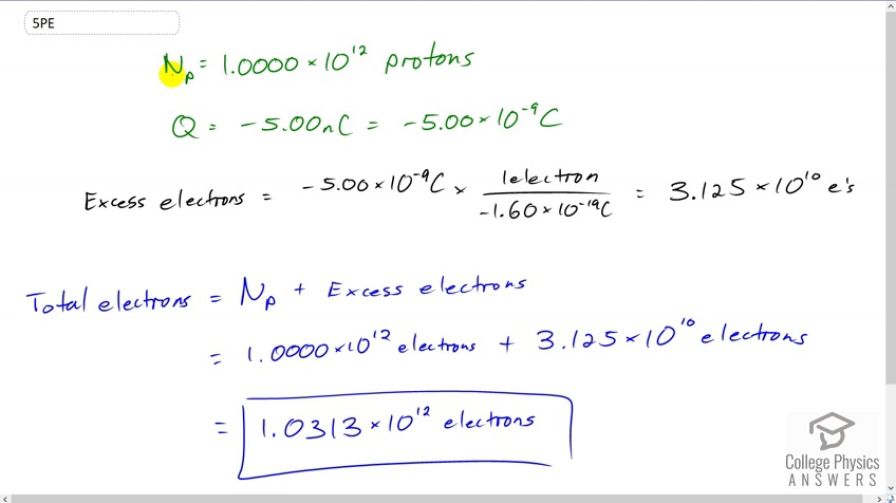 5PE
Nₚ = 1.0000 × 10¹² protons
Q = -5.00nC = -5.00 × 10⁻⁹ C
Excess electrons = -5.00 × 10⁻⁹ C × 1electron / -1.60 × 10⁻¹⁹ C = 3.125 × 10¹⁰ e's
Total electrons = Nₚ + Excess electrons
= 1.0000 × 10¹² electrons + 3.125 × 10¹⁰ electrons
= 1.0313 × 10¹² electrons
College Physics
ANSWERS